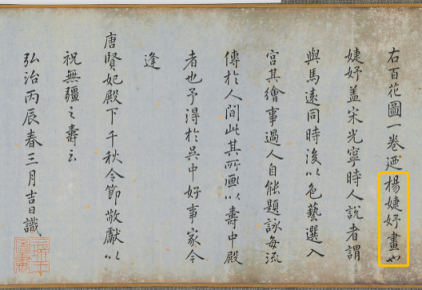 右百花圖一卷迺楊婕妤畫也
婕妤蓋宋光寧時人說者謂
與馬遠同時後以色藝選入
宮其繪事過人自能題詠每流
傳於人間此其所画以壽中殿
者也予得於吳中好事家今
逢
唐賢妃殿下千秋令節敬獻以
祝無疆之壽云
弘治丙辰春三月吉日識